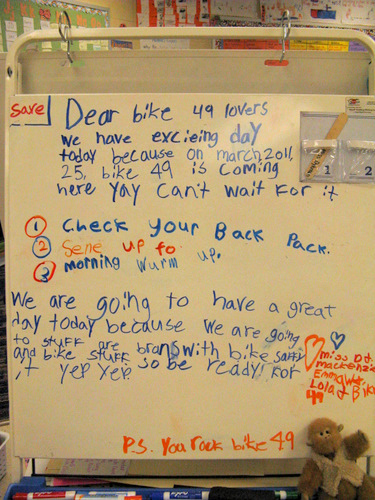 save
Dear bike 49 lovers
we have excieing day
today because on march 2011,
25, bike 49 is coming
here yay can't wait for it
1 Check your Back Pack.
2 Sene up fo
3 morning wurm up.
We are going to have a great
day today because we are going
to stuff are brans with bike safty
and bike stuff so be ready! for
it yep yep
miss D.J.
mackenzie
Emma W
Lola & Bike
49
P.S. You rock bike 49
1
2